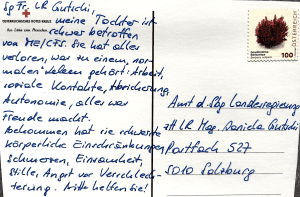 Sg Fr. LR Gutschi,
meine Tochter ist
ÖSTERREICHISCHES ROTES KREUZ
Aus Liebe zum Menschen.
schwer betroffen
von ME/CFS. Sie hat alles
verloren, was zu einem nor-
malen Leben gehört: Arbeit,
soziale Kontakte, Absicherung,
Autonomie, alles was
Freude macht.
Bekommen hat sie schwerste
körperliche Einschränkungen,
Schmerzen, Einsamkeit,
Stille, Angst vor Verschlech-
terung. Bitte helfen Sie!
ÖSTERREICH
100
Amt d. Sbg Landesregierung
zH LR Mag. Daniela Gutschi
Postfach 527
5010 Salzburg